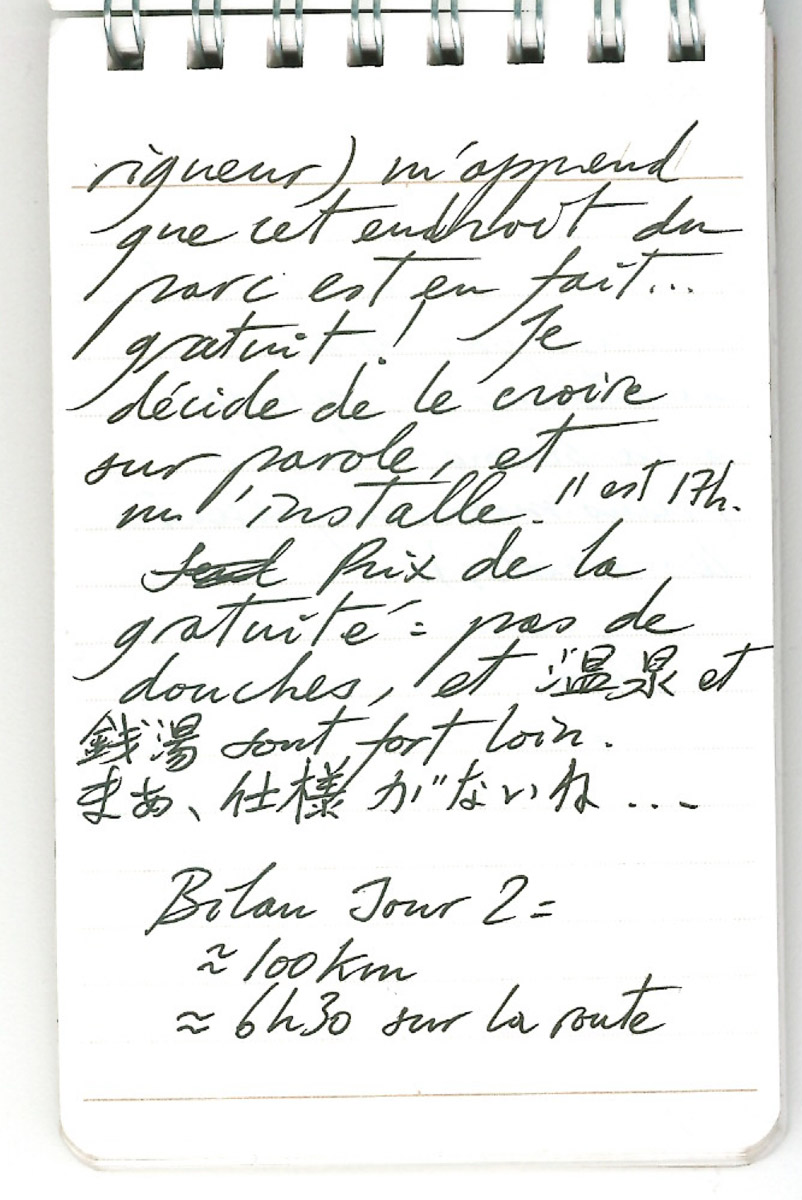 rigueur) m'apprend
que cet endroit du
parc est en fait...
gratuit! Je
décide de le croire
sur parole, et
m'installe. Il est 17h.
Prix de la
gratuité = pas de
douches, et 温泉 et
銭湯 sont fort loin.
まあ、仕様がないね...
Bilan Jour 2 =
≈ 100km
≈ 6h30 sur la route